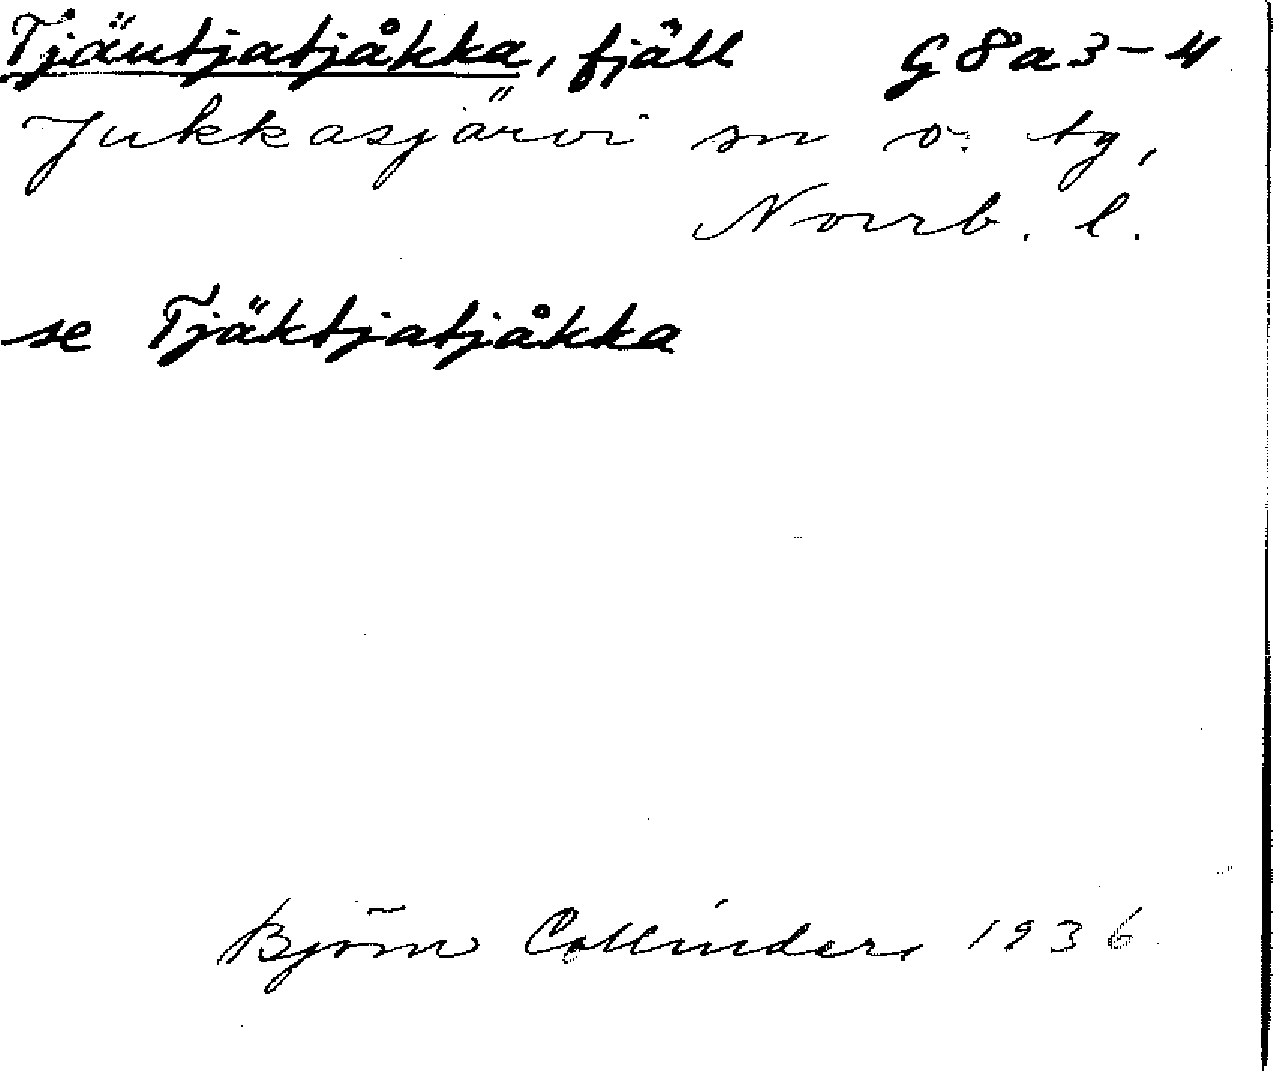 Tjäutjatjåkka, fjäll G8a3-4
Jukkasjärvi sn o. tg,
Norrb. l.
se Tjäktjatjåkka
Björn Collinder 1936